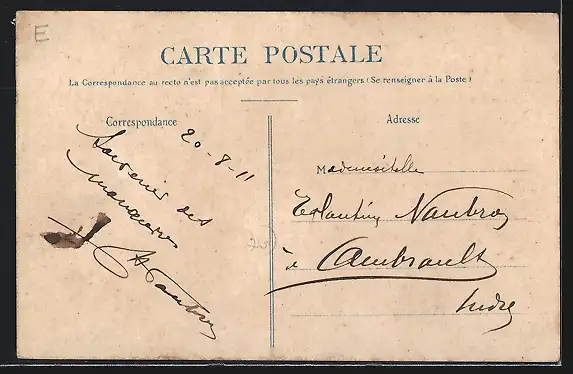 E
CARTE POSTALE
La Correspondance au recto n'est pas acceptée par tous les pays étrangers (Se renseigner à la Poste)
Correspondance
Adresse
20-8-11
Souvenir des
manoeuvres
Mademoiselle
Eglantine Naubroy
à Ambrault
Indre